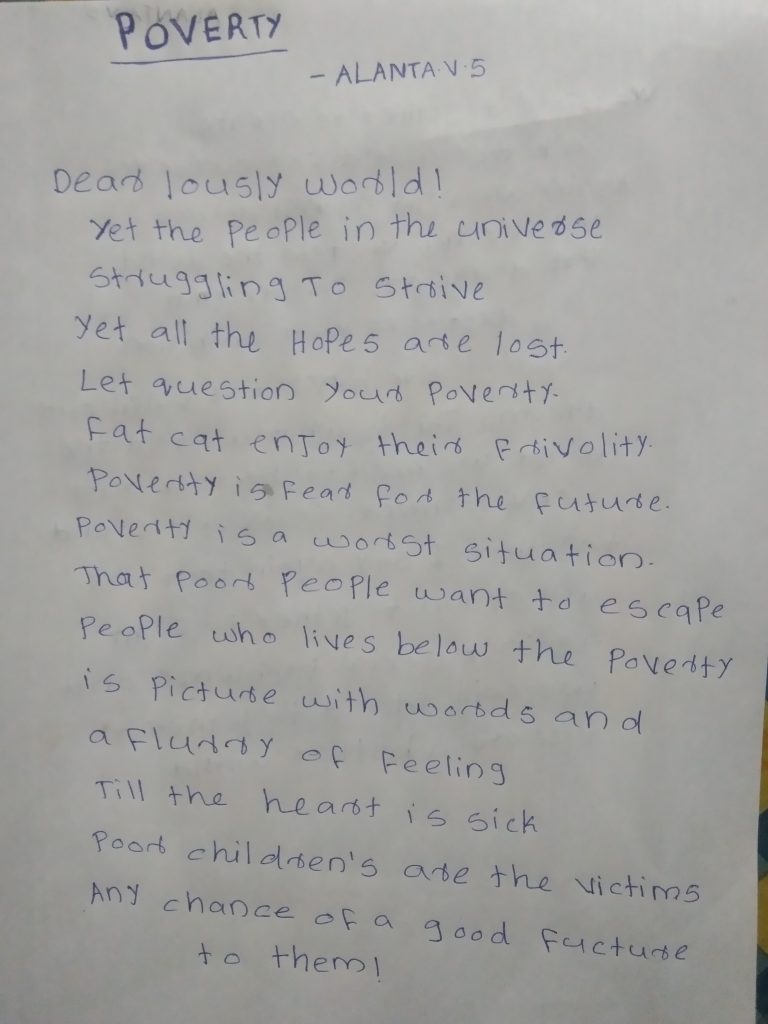 POVERTY
- ALANTA.V.S
Dear lously world!
Yet the people in the universe
Struggling To Strive
Yet all the Hopes are lost.
Let question your Poverty.
Fat cat enJoy their Frivolity.
Poverty is Fear for the future.
Poverty is a worst situation.
That poor People want to escape
People who lives below the Poverty
is Picture with words and
a Flurry of Feeling
Till the heart is sick
Poor children's are the victims
Any chance of a good Fucture
to them!